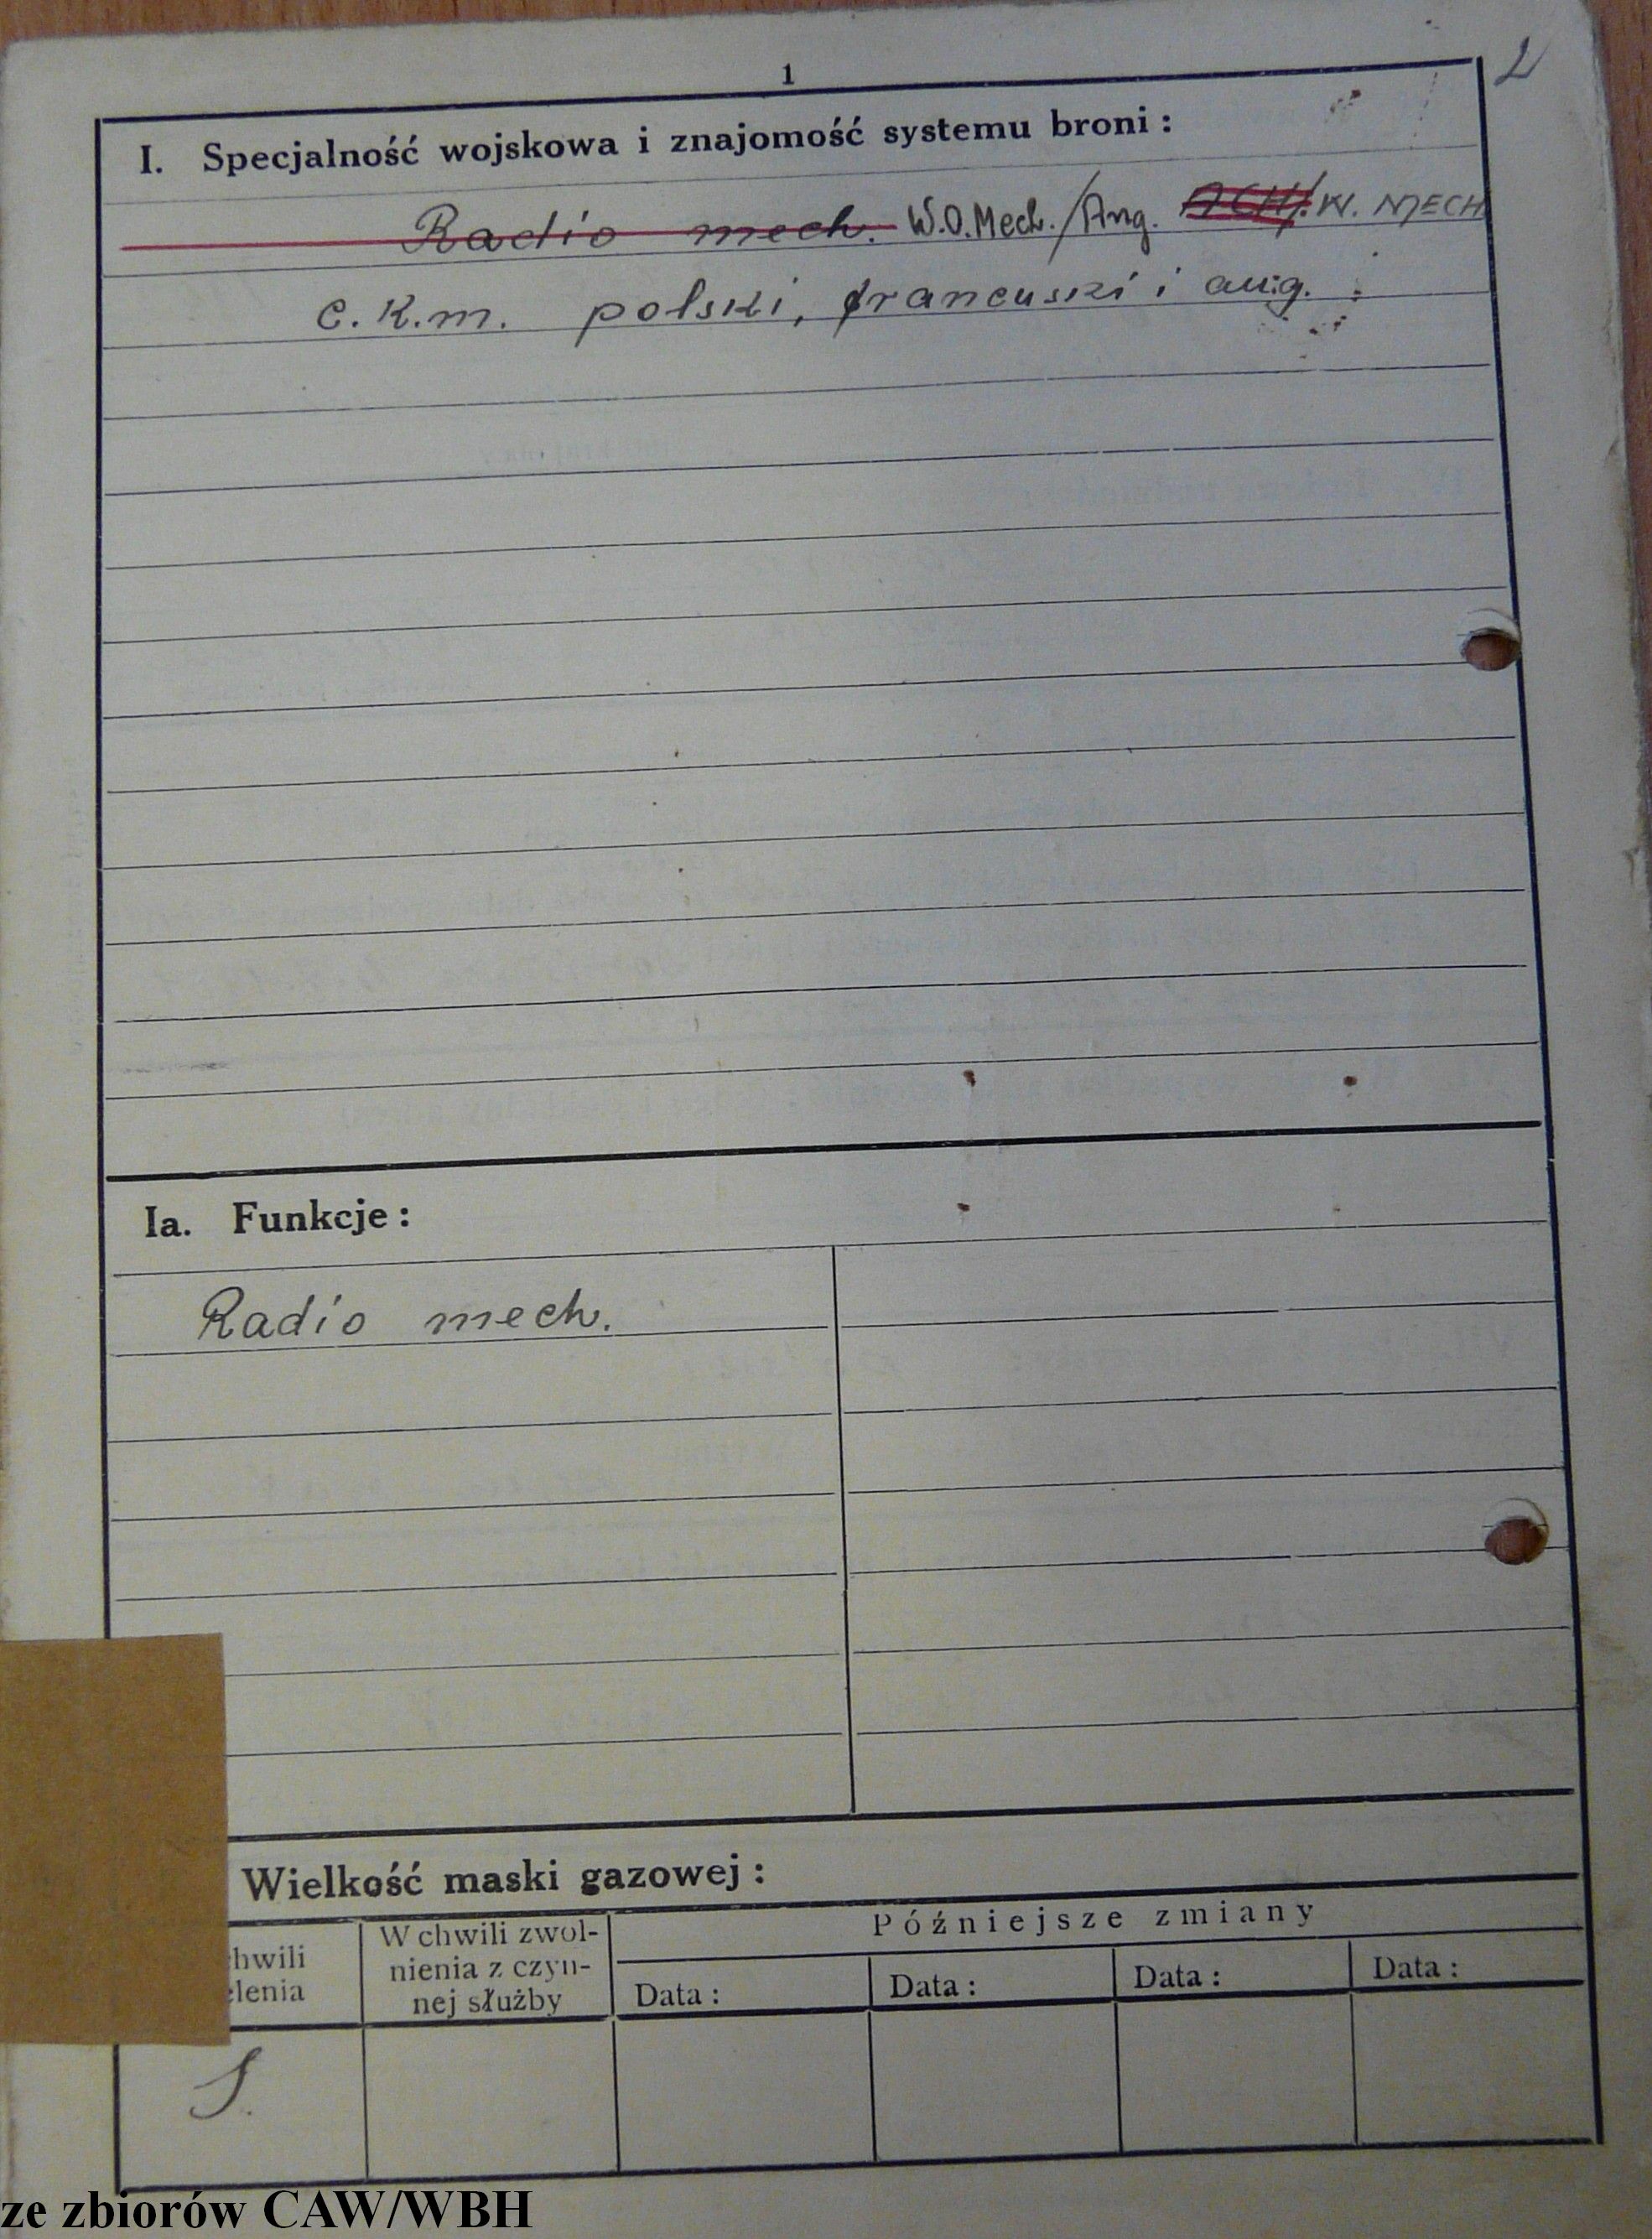 1
2
I. Specjalność wojskowa i znajomość systemu broni :
Radio mech. W.O.Mech./Ang. ACH/. W. MECH
c.k.m. polski, francuski i ang.
Ia. Funkcje :
Radio mech.
Wielkość maski gazowej :
hwili
elenia
W chwili zwol-
nienia z czyn-
nej służby
Późniejsze zmiany
Data :
Data :
Data :
Data :
ze zbiorów CAW/WBH